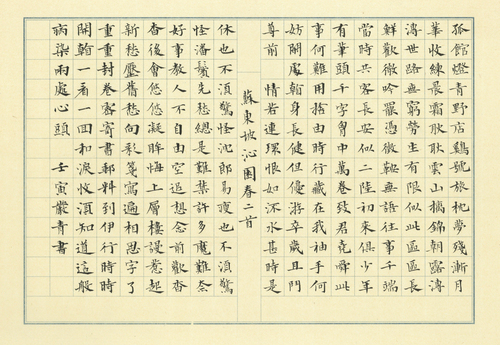 孤館燈青野店鷄號旅枕夢殘漸月
華收練晨霜耿耿雲山摛錦朝露漙
漙世路無窮勞生有限似此區區長
鮮歡微吟罷憑征鞍無語往事千端
當時共客長安似二陸初來俱少年
有筆頭千字胷中萬卷致君堯舜此
事何難用捨由時行藏在我袖手何
妨閒處翰身長健但優游卒歲且鬥
尊前 情若連環恨如流水甚時是
蘇東坡沁園春二首
休也不須驚怪沈郎易瘦也不須驚
怪潘鬢先愁總是難禁許多魔難奈
好事教人不自由空追想念前歡杳
杳後會悠悠凝眸悔上層樓謾惹起
新愁壓舊愁向彩箋寫遍相思字了
重重封卷密寄書郵料到伊行時時
開翰一看一回和淚收須知道這般
病染兩處心頭 壬寅叢青書